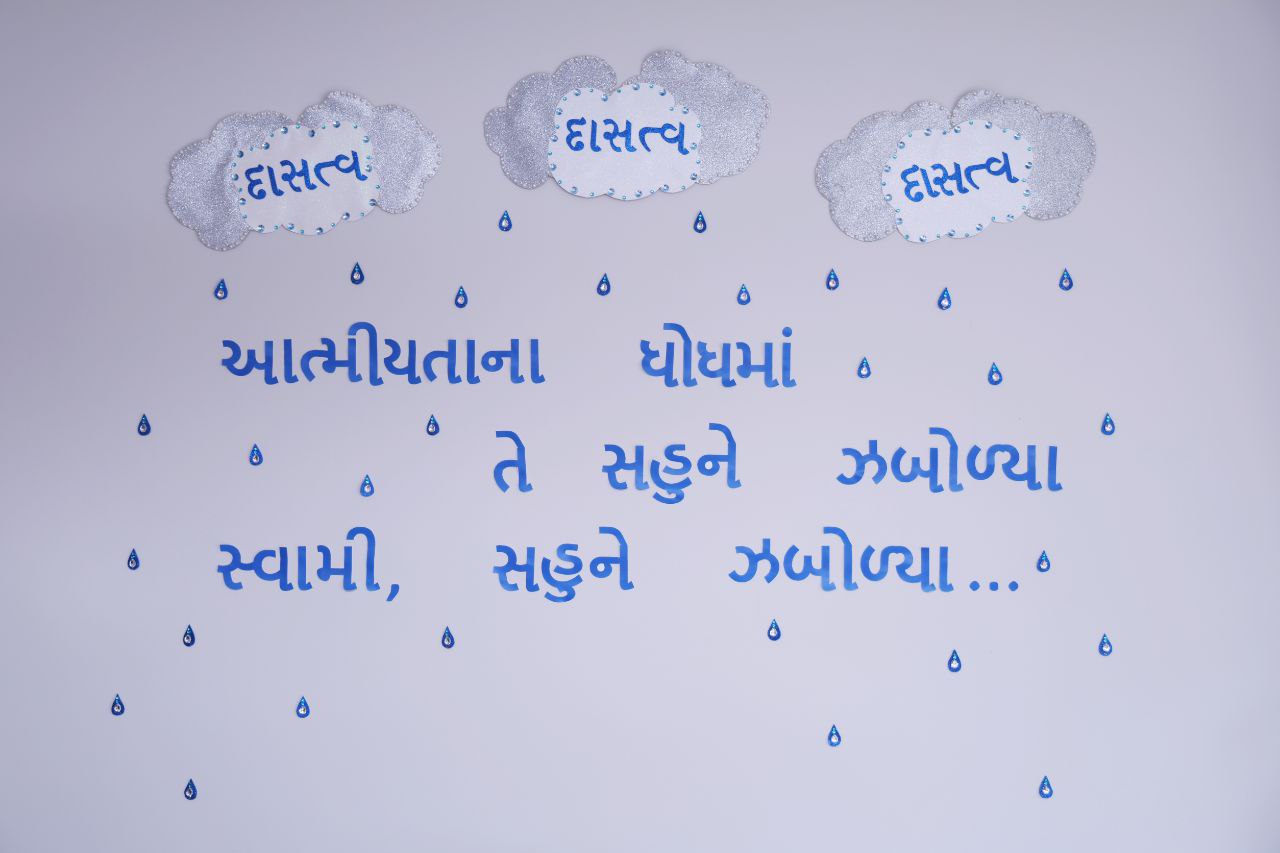 દાસત્વ
દાસત્વ
દાસત્વ
આત્મીયતાના ધોધમાં
તે સહુને ઝબોળ્યા
સ્વામી, સહુને ઝબોળ્યા...